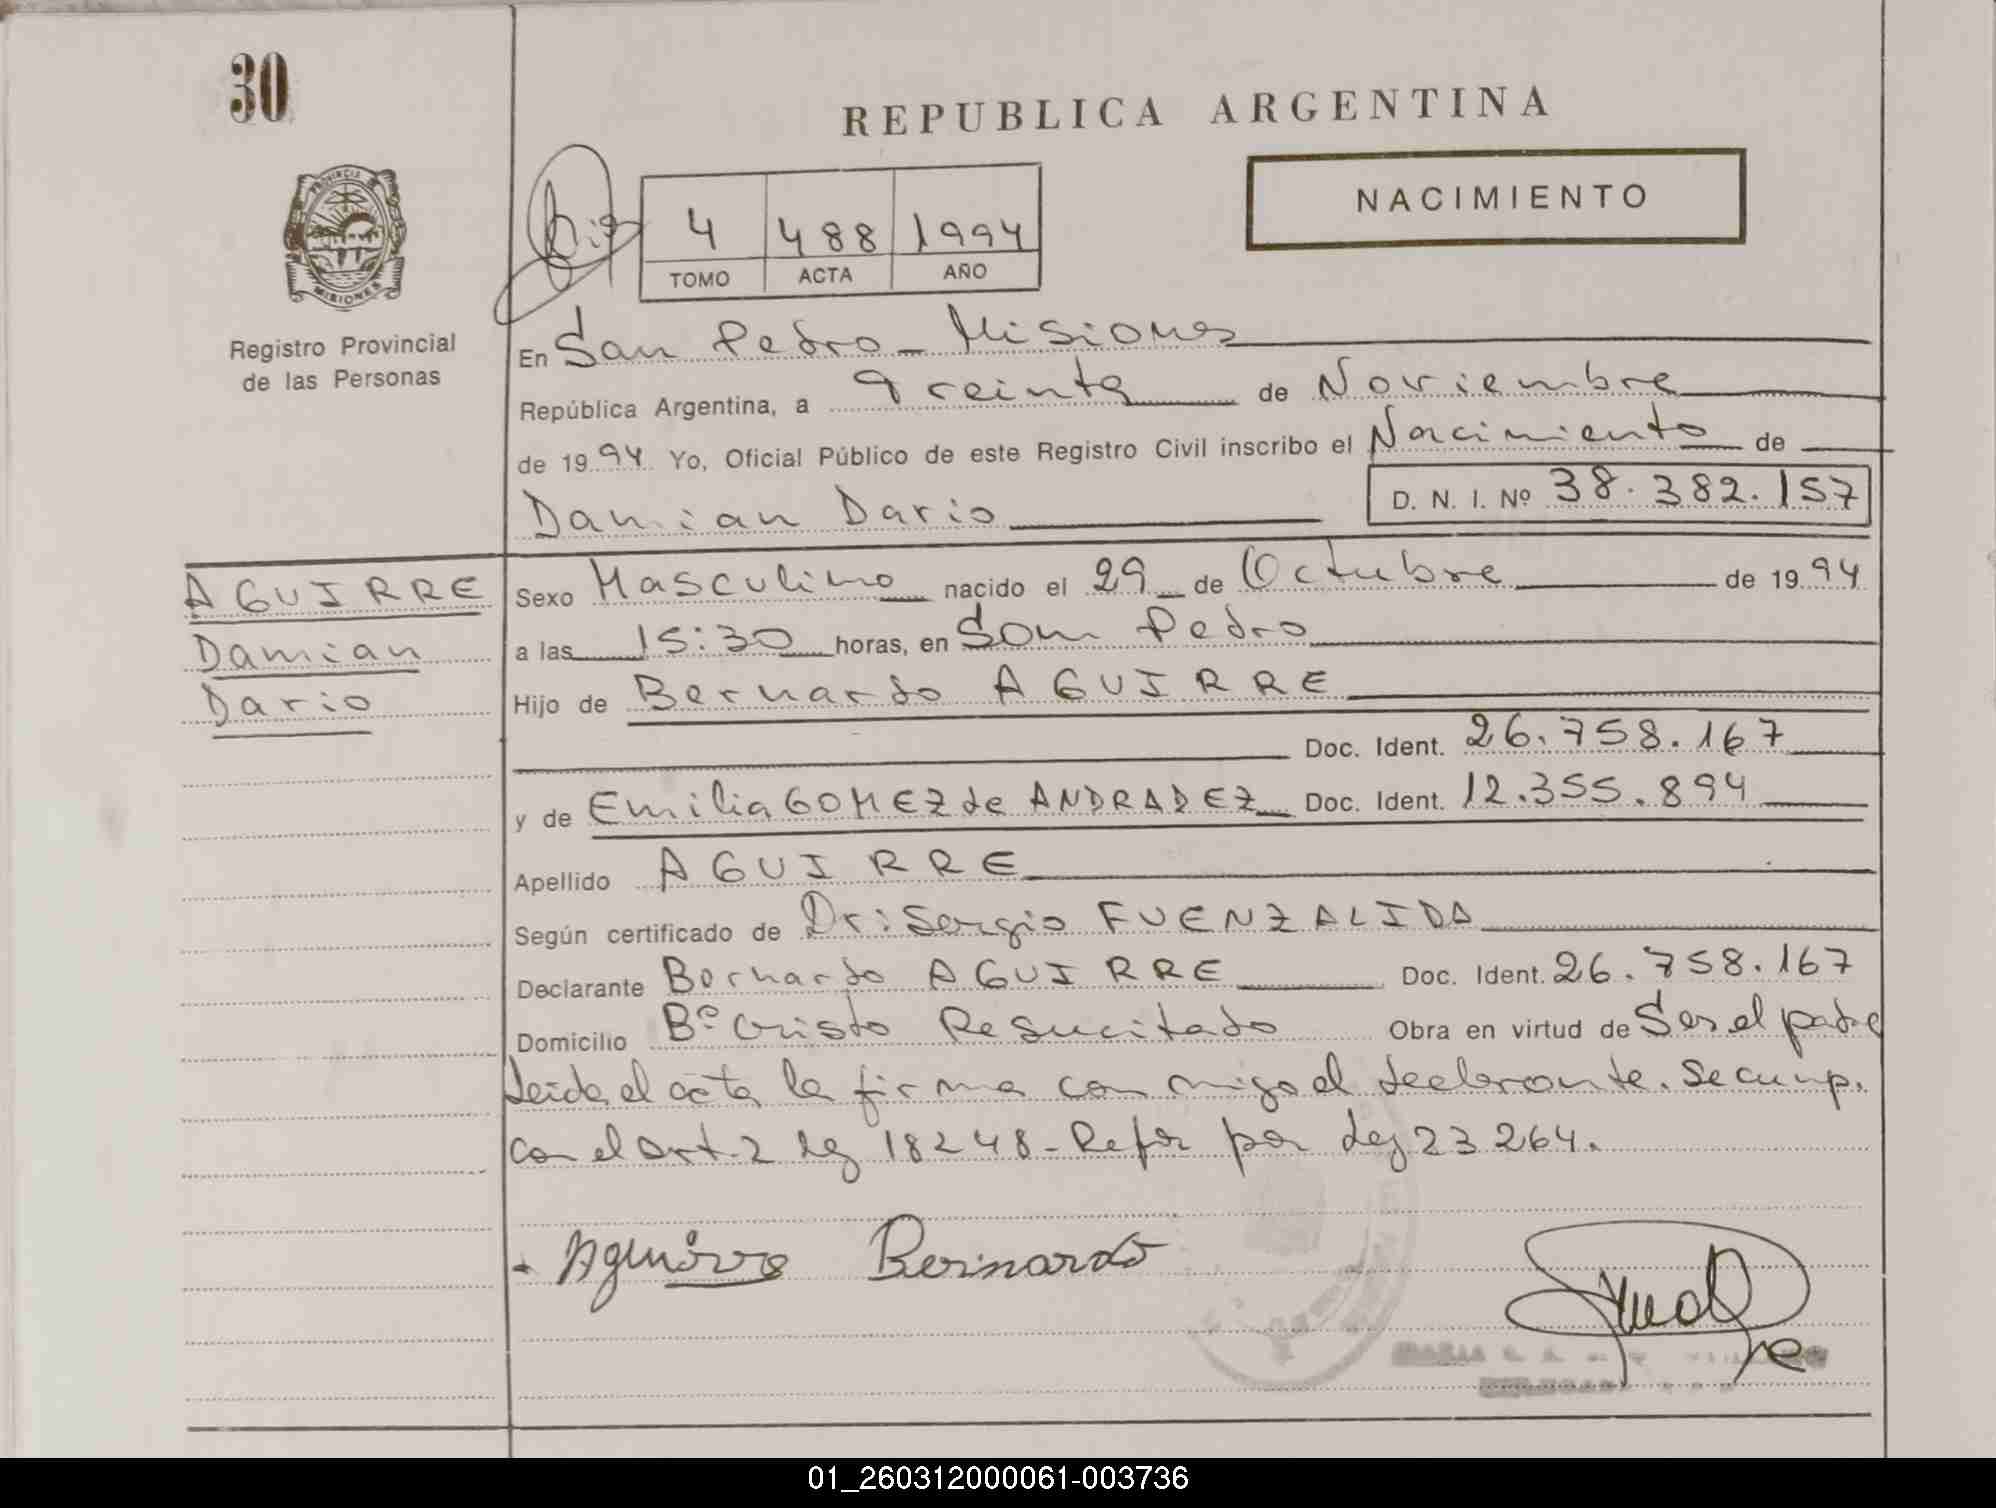 30
REPUBLICA ARGENTINA
NACIMIENTO
Bis
4 488 1994
TOMO ACTA AÑO
PROVINCIA DE MISIONES
Registro Provincial
de las Personas
En San Pedro - Misiones
República Argentina, a Treinta de Noviembre
de 1994 Yo, Oficial Público de este Registro Civil inscribo el Nacimiento de
Damian Dario D. N. I. Nº 38.382.157
AGUIRRE
Damian
Dario
Sexo Masculino nacido el 29 de Octubre de 1994
a las 15:30 horas, en San Pedro
Hijo de Bernardo AGUIRRE
Doc. Ident. 26.758.167
y de Emilia GOMEZ de ANDRADEZ Doc. Ident. 12.355.894
Apellido AGUIRRE
Según certificado de Dr: Sergio FUENZALIDA
Declarante Bernardo AGUIRRE Doc. Ident. 26.758.167
Domicilio Bº Cristo Resucitado Obra en virtud de Ser el padre
Leida el acta la firma conmigo el declarante. Se cump.
con el art. 2 ley 18248 - Refor por Ley 23264.
Aguirre Bernardo
01_260312000061-003736